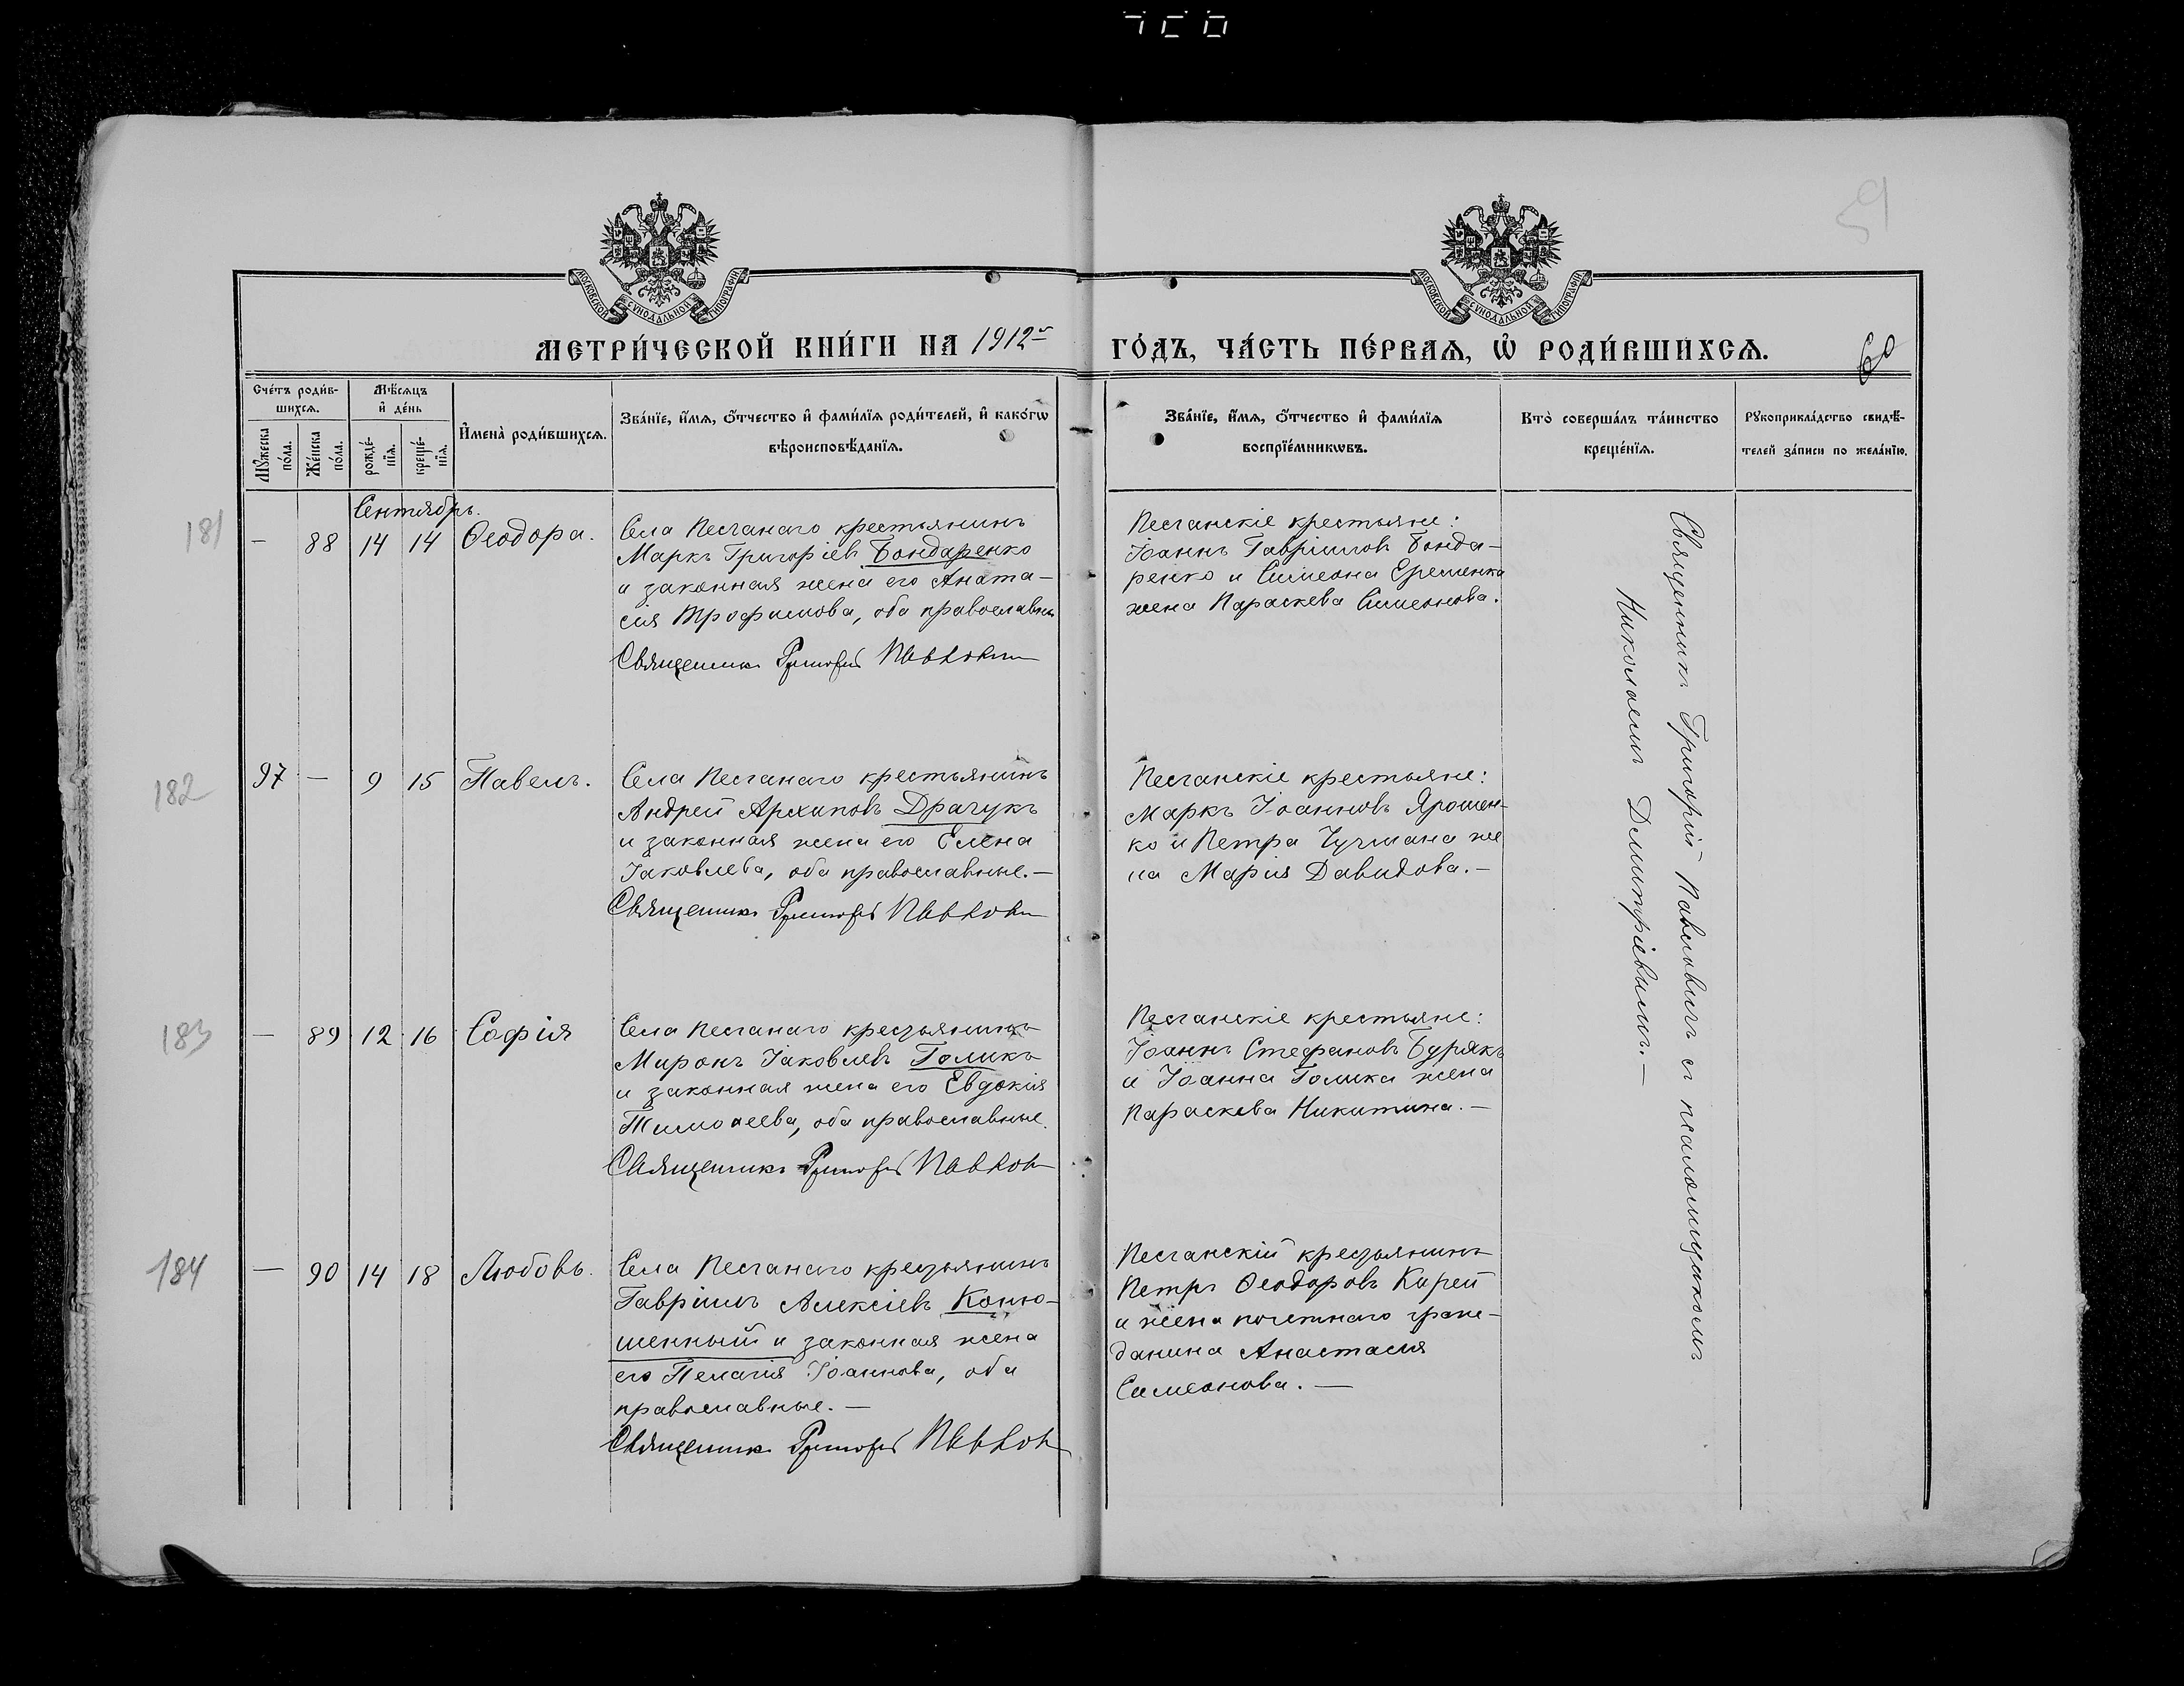 59
МОСКОВСКОЙ СѴНОДАЛЬНОЙ ТИПОГРАФІИ
МОСКОВСКОЙ СѴНОДАЛЬНОЙ ТИПОГРАФІИ
МЕТРИ́ЧЕСКОЙ КНИ́ГИ НА 1912й ГО́ДЪ, ЧА́СТЬ ПЕ́РВАѦ, Ѽ РОДИ́ВШИХСѦ.
60
Сче́тъ роди́в-
шихсѧ.
Мꙋ́жеска
по́ла.
Же́нска
по́ла.
Мѣ́сѧцъ
и҆ де́нь
рожде́-
нїѧ.
креще́-
нїѧ.
И҆мена̀ роди́вшихсѧ.
Зва́нїе, и҆́мѧ, ѻ҆́тчество и҆ фами́лїѧ роди́телей, и҆ како́гѡ
вѣроисповѣ́данїѧ.
Зва́нїе, и҆́мѧ, ѻ҆́тчество и҆ фами́лїѧ
воспрїе́мникѡвъ.
Кто̀ соверша́лъ та́инство
креще́нїѧ.
Рꙋкоприкла́дство свидѣ́-
телей за́писи по жела́нїю.
Сентябрь.
181
— 88 14 14 Ѳеодора.
Села Песчанаго крестьянинъ
Маркъ Григоріевъ Бондаренко
и законная жена его Анаста-
сія Трофимова, оба православны
Священникъ Григорій Павлович
Песчанскіе крестьяне:
Іоаннъ Гавріиловъ Бонда-
ренко и Симеона Еременка
жена Параскева Симеонова.
Священникъ Григорій Павловичъ съ псаломщикомъ
Николаемъ Димитріевымъ.—
182
97 — 9 15 Павелъ.
Села Песчанаго крестьянинъ
Андрей Архиповъ Драчукъ
и законная жена его Елена
Іаковлева, оба православные.—
Священникъ Григорій Павлович
Песчанскіе крестьяне:
Маркъ Іоанновъ Ярошен-
ко и Петра Чучмана же
на Марія Давидова.—
183
— 89 12 16 Софія
Села Песчанаго крестьянинъ
Миронъ Іаковлевъ Голикъ
и законная жена его Евдокія
Тимоѳеева, оба православные.
Священникъ Григорій Павлович
Песчанскіе крестьяне:
Іоаннъ Стефановъ Бурякъ
и Іоанна Голика жена
Параскева Никитина.—
184
— 90 14 18 Любовь.
Села Песчанаго крестьянинъ
Гавріилъ Алексіевъ Коню-
шенный и законная жена
его Пелагія Іоаннова, оба
православные.—
Священникъ Григорій Павлович
Песчанскій крестьянинъ
Петръ Ѳеодоровъ Кирей
и жена почетнаго граж-
данина Анастасія
Симеонова.—